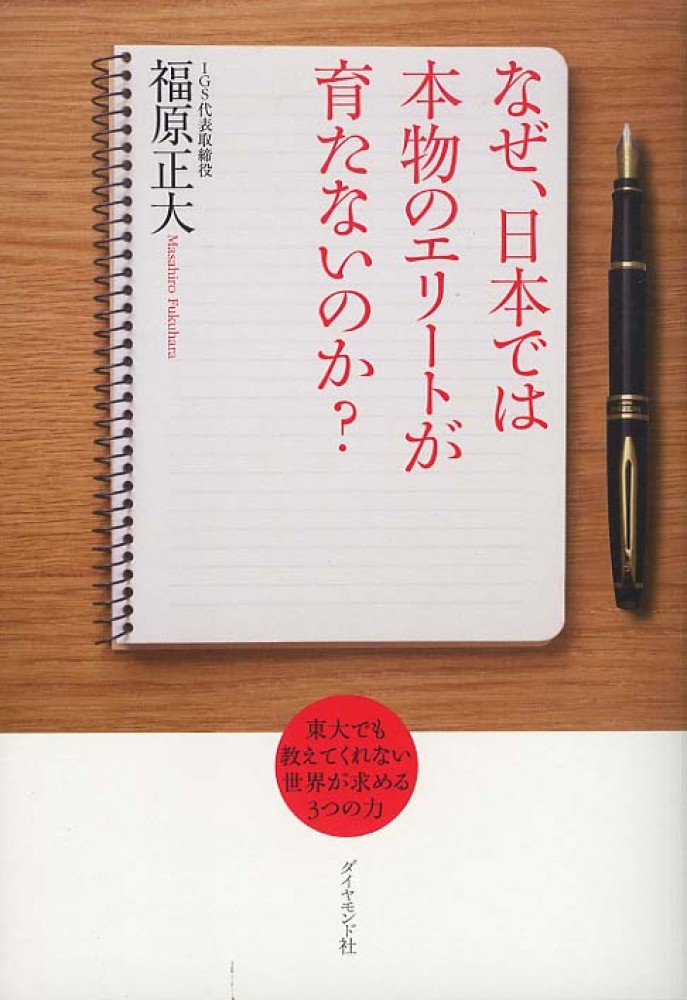 なぜ、日本では
本物のエリートが
育たないのか?
IGS代表取締役
福原正大
Masahiro Fukuhara
東大でも
教えてくれない
世界が求める
3つの力
ダイヤモンド社